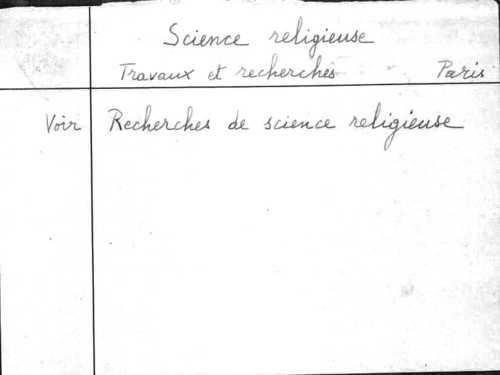 Science religieuse
Travaux et recherches Paris
Voir Recherches de science religieuse